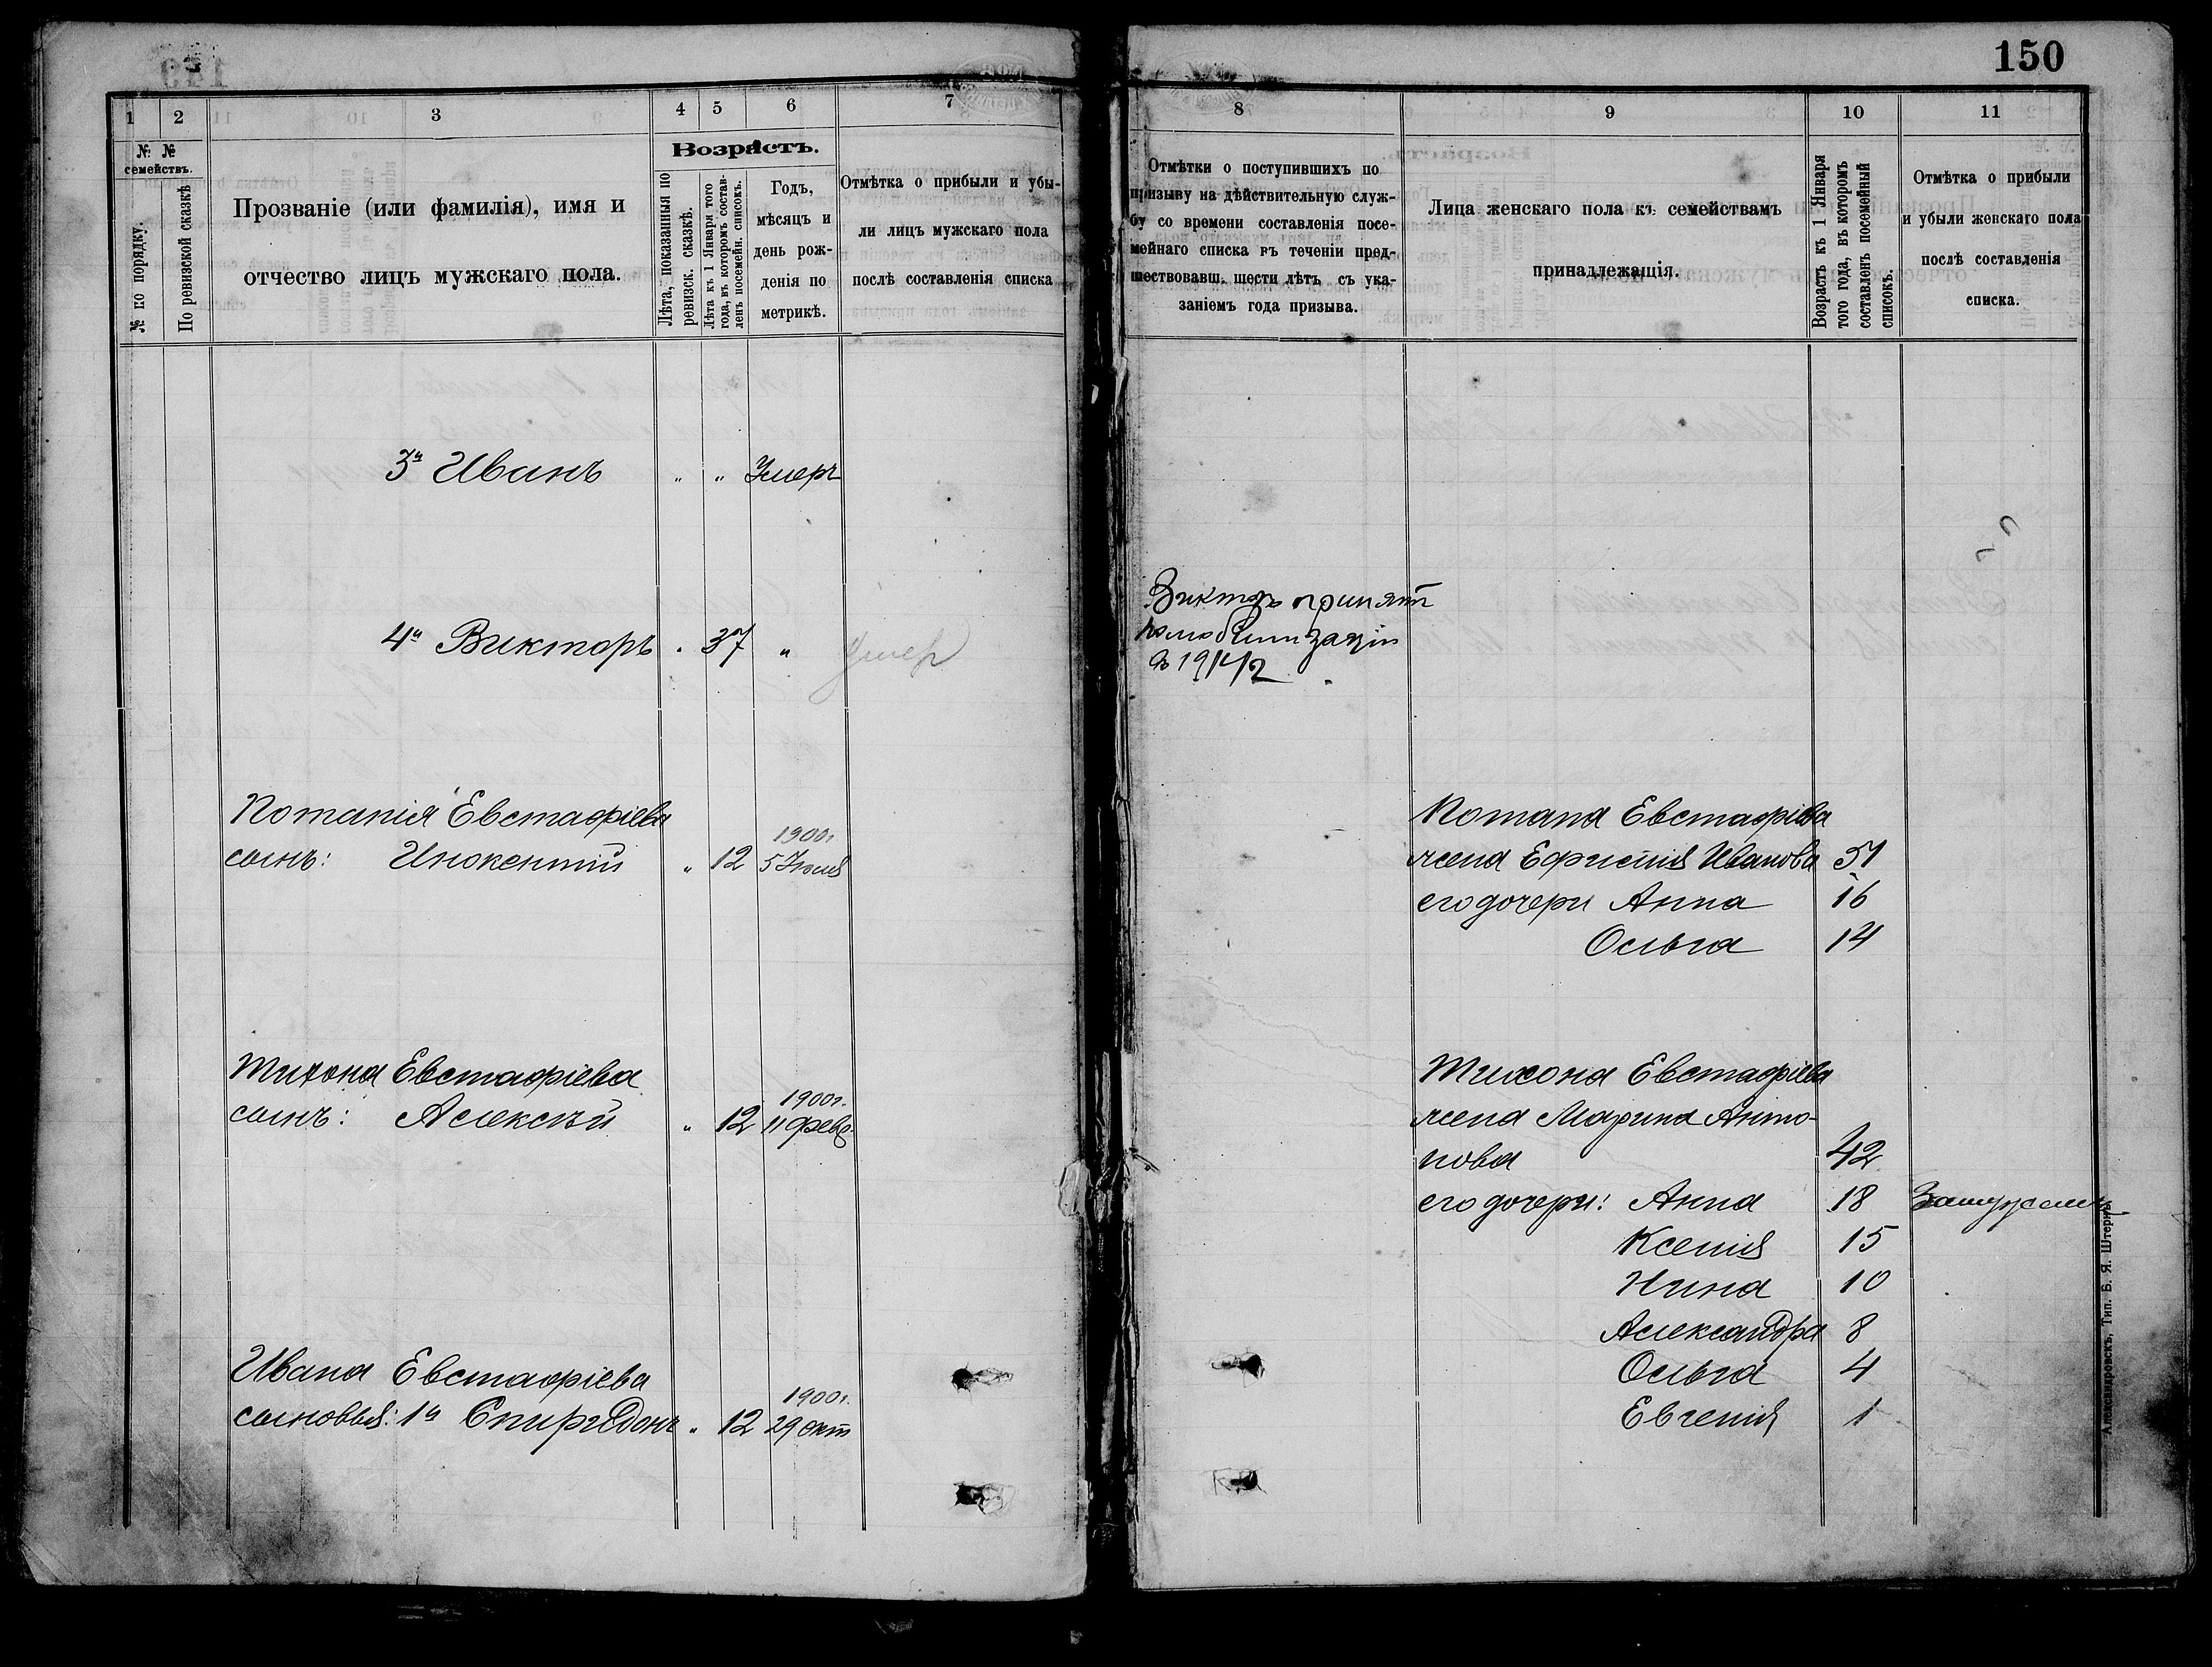 150
1
2
3
4
5
6
7
№ №
семействъ.
№ по порядку.
По ревизской сказкѣ
Прозваніе (или фамилія), имя и
отчество лицъ мужскаго пола.
Возрастъ.
Лѣта, показанныя по
ревизск. сказкѣ.
Лѣта къ 1 Января того
года, въ которомъ состав-
ленъ посемейн. списокъ.
Годъ,
мѣсяцъ и
день рож-
денія по
метрикѣ.
Отмѣтка о прибыли и убы-
ли лицъ мужскаго пола
послѣ составленія списка
3й Иванъ " " Умеръ
4й Викторъ 37 " Умер
Потапія Евстафіева
сынъ: Инокентій " 12 1900г. 5 Июля
Тихона Евстафіева
сынъ: Алексѣй " 12 1900г. 11 Февр.
Ивана Евстафіева
сыновья: 1й Спиридонъ " 12 1900г. 29 Окт
8
9
10
11
Отмѣтки о поступившихъ по
призыву на дѣйствительную служ-
бу со времени составленія посе-
мейнаго списка въ теченіи пред-
шествовавш. шести лѣтъ съ ука-
заніемъ года призыва.
Лица женскаго пола къ семействамъ
принадлежащія.
Возрастъ къ 1 Января
того года, въ которомъ
составленъ посемейный
списокъ.
Отмѣтка о прибыли
и убыли женскаго пола
послѣ составленія
списка.
Викторъ принят
по мобилизаціи
в 1914 г
Потапа Евстафіева
жена Ефимія Иванова 51
его дочери Анна 16
Ольга 14
Тихона Евстафіева
жена Марина Анто-
нова 42
его дочери: Анна 18 Замужемъ
Ксенія 15
Нина 10
Александра 8
Ольга 4
Евгенія 1
Александровскъ, Тип. Б. Я. Штернъ